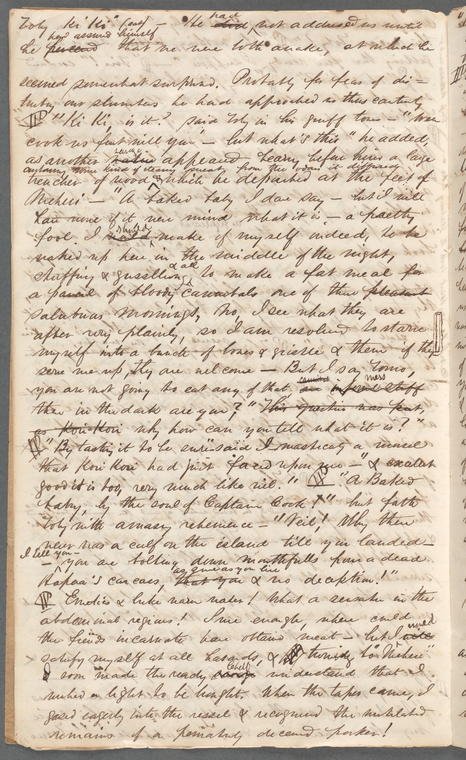 Toby "Ki Ki" (eve) — He had not addressed us until
he had assured himself that we were both awake, at which he
seemed somewhat surprised. Probably for fear of dis-
turbing our slumbers he had approached us thus cautiously
"Ki Ki, is it?" said Toby in his gruff tone — "
cook us first will you" — but what's this" he added,
as another savage appeared bearing before him a large
trencher of wood containing some kind of steaming meat, from the odors it diffused & which he deposited at the feet of
Mehevi — "A baked baby I dare say — but I will
have none of it never mind what it is — a pretty
fool I should make of myself indeed, to be
waked up here in the middle of the night,
stuffing & guzzling, & all to make a fat meal for
a parcel of bloody cannibals one of these pleasant
mornings, No, I see what they are
after very plainly, so I am resolved to starve
myself into a bunch of bones & gristle & then if they
serve me up, they are welcome — But I say, Tommo,
you are not going to eat any of that mess
there in the dark are you? "
why how can you tell what it is?"
"By tasting it to be sure" said I masticating a morsel
that Kori Kori had just forced upon me — " & excellent
good it is too, very much like veal." "A Baked
baby, by the soul of Captain Cook!" burst forth
Toby with amazing vehemence — "Veal! Why there
never was a calf on the island till you landed —
— I tell you you are bolting down mouthfuls from a dead
Hapaa's carcass, as sure as you live & no deception!"
Emetics & luke warm water! What a sensation in the
abdominal regions! Sure enough, where could
the fiends incarnate have obtained meat — but I resolved
satisfy myself at all hazards, & turning to Mehevi
I soon made the ready chief understand that I
wished a light to be brought. When the taper came, I
gazed eagerly into the vessel & recognised the mutilated
remains of a juvenile porker!